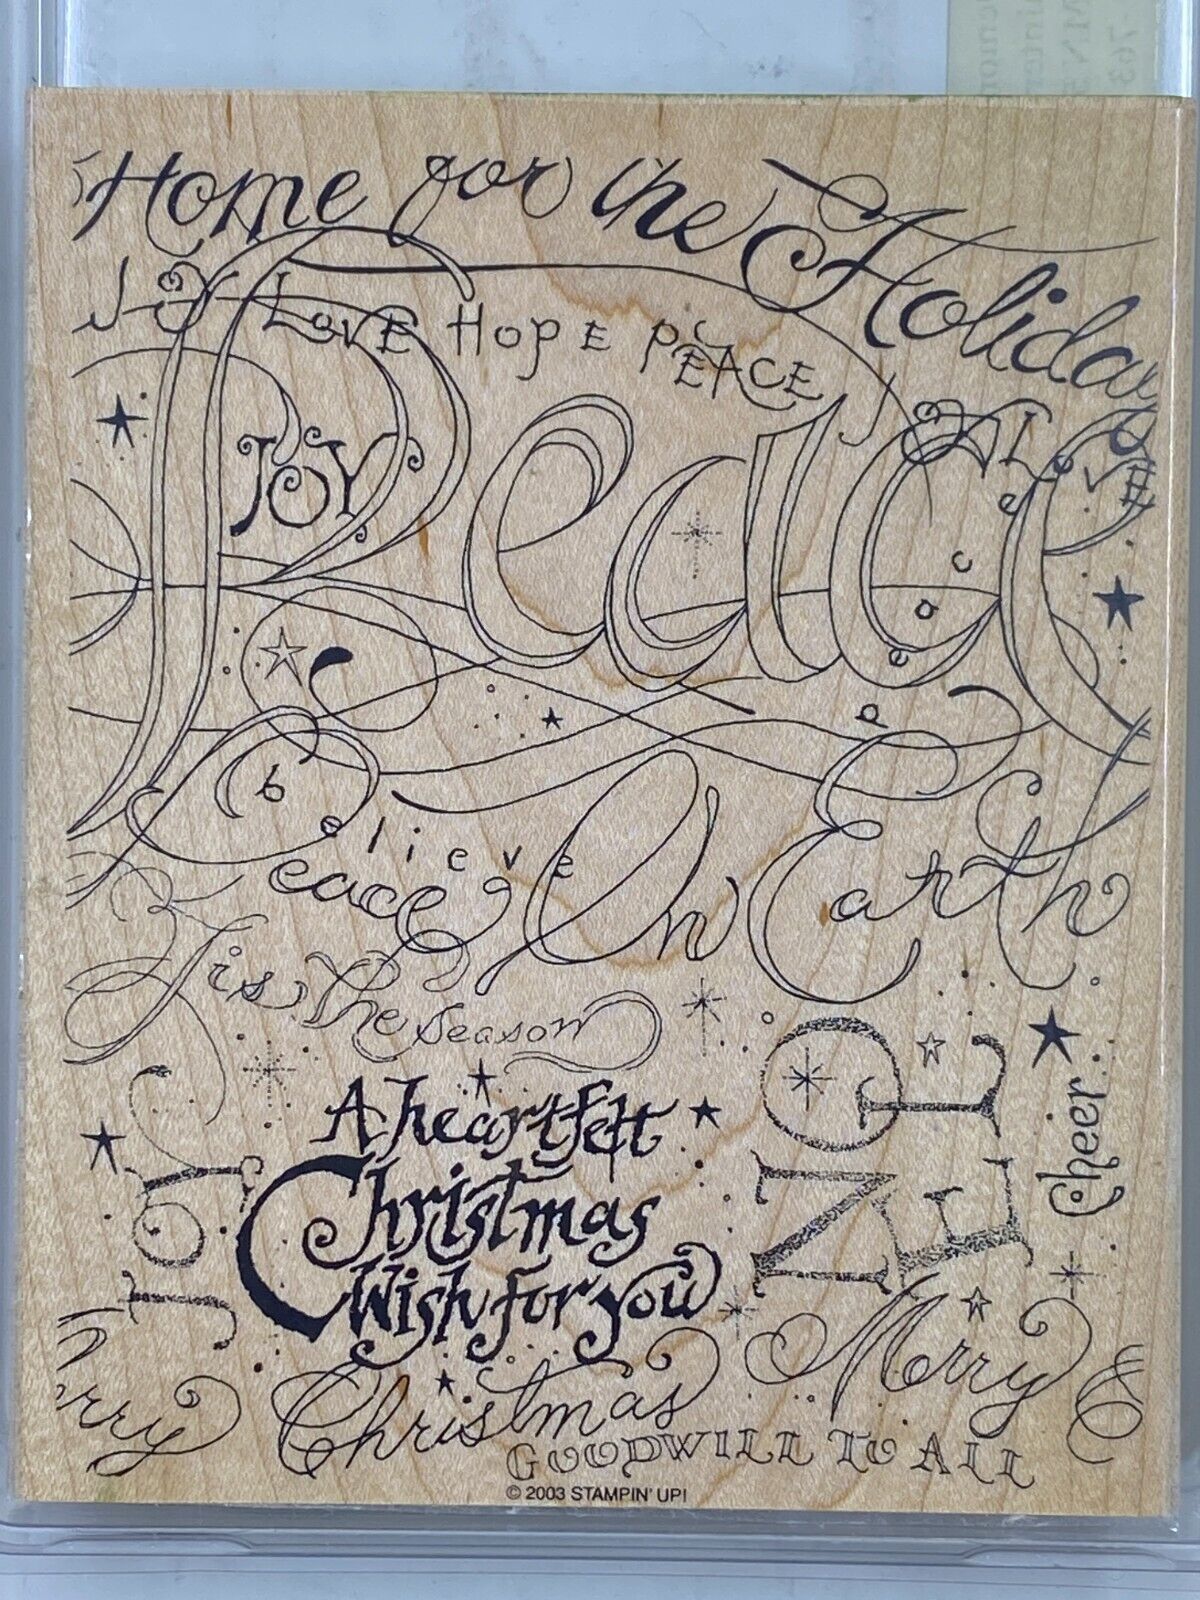 Home for the Holiday
Joy Love Hope Peace
Joy
Peace
Love
peace
believe
Peace On Earth
Tis The Season
NOEL
Cheer
Joy
A heartfelt
Christmas
Wish for you
Merry
rry
Christmas
GOODWILL TO ALL
© 2003 STAMPIN' UP!